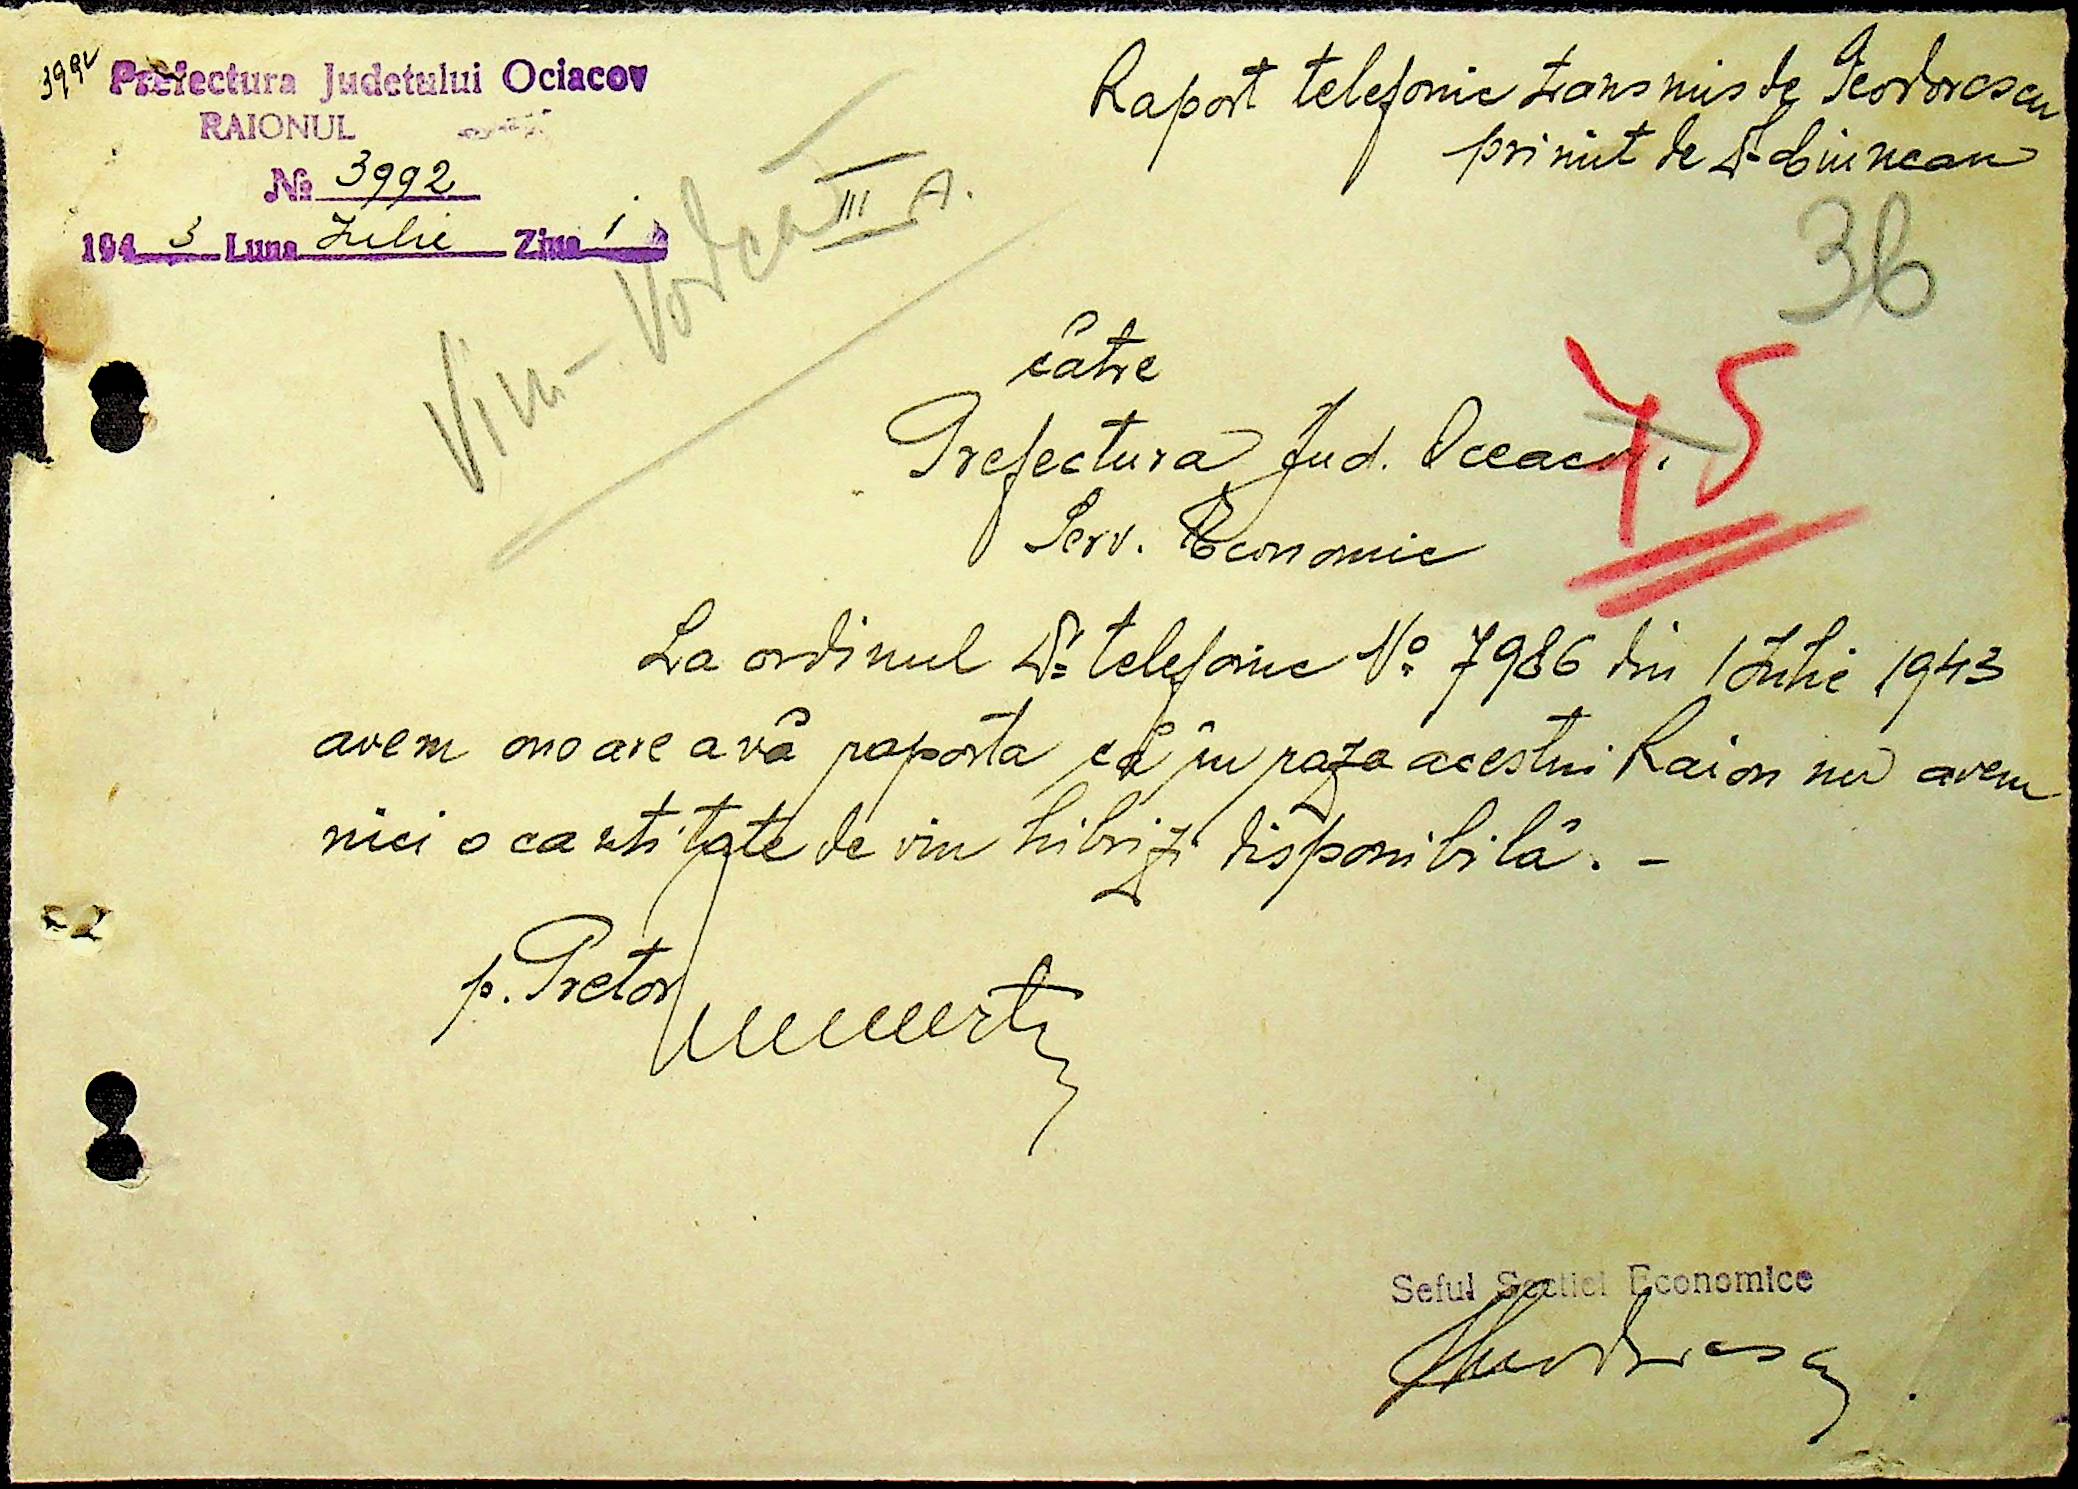 3992
Prefectura Judetului Ociacov
RAIONUL
№ 3992
194 3 Luna Iulie Ziua 1
Raport telefonic transmis de Teodorescu
primit de Dl
Vin - Vodcă
III A.
36
75
către
Prefectura Jud. Oceacov.
Serv. Economic
La ordinul Dv. telefonic No 7986 din 1 Iulie 1943
avem onoare a vă raporta că în raza acestui Raion nu avem
nici o cantitate de vin hibrizi disponibilă. -
p. Pretor
Seful Sectiei Economice